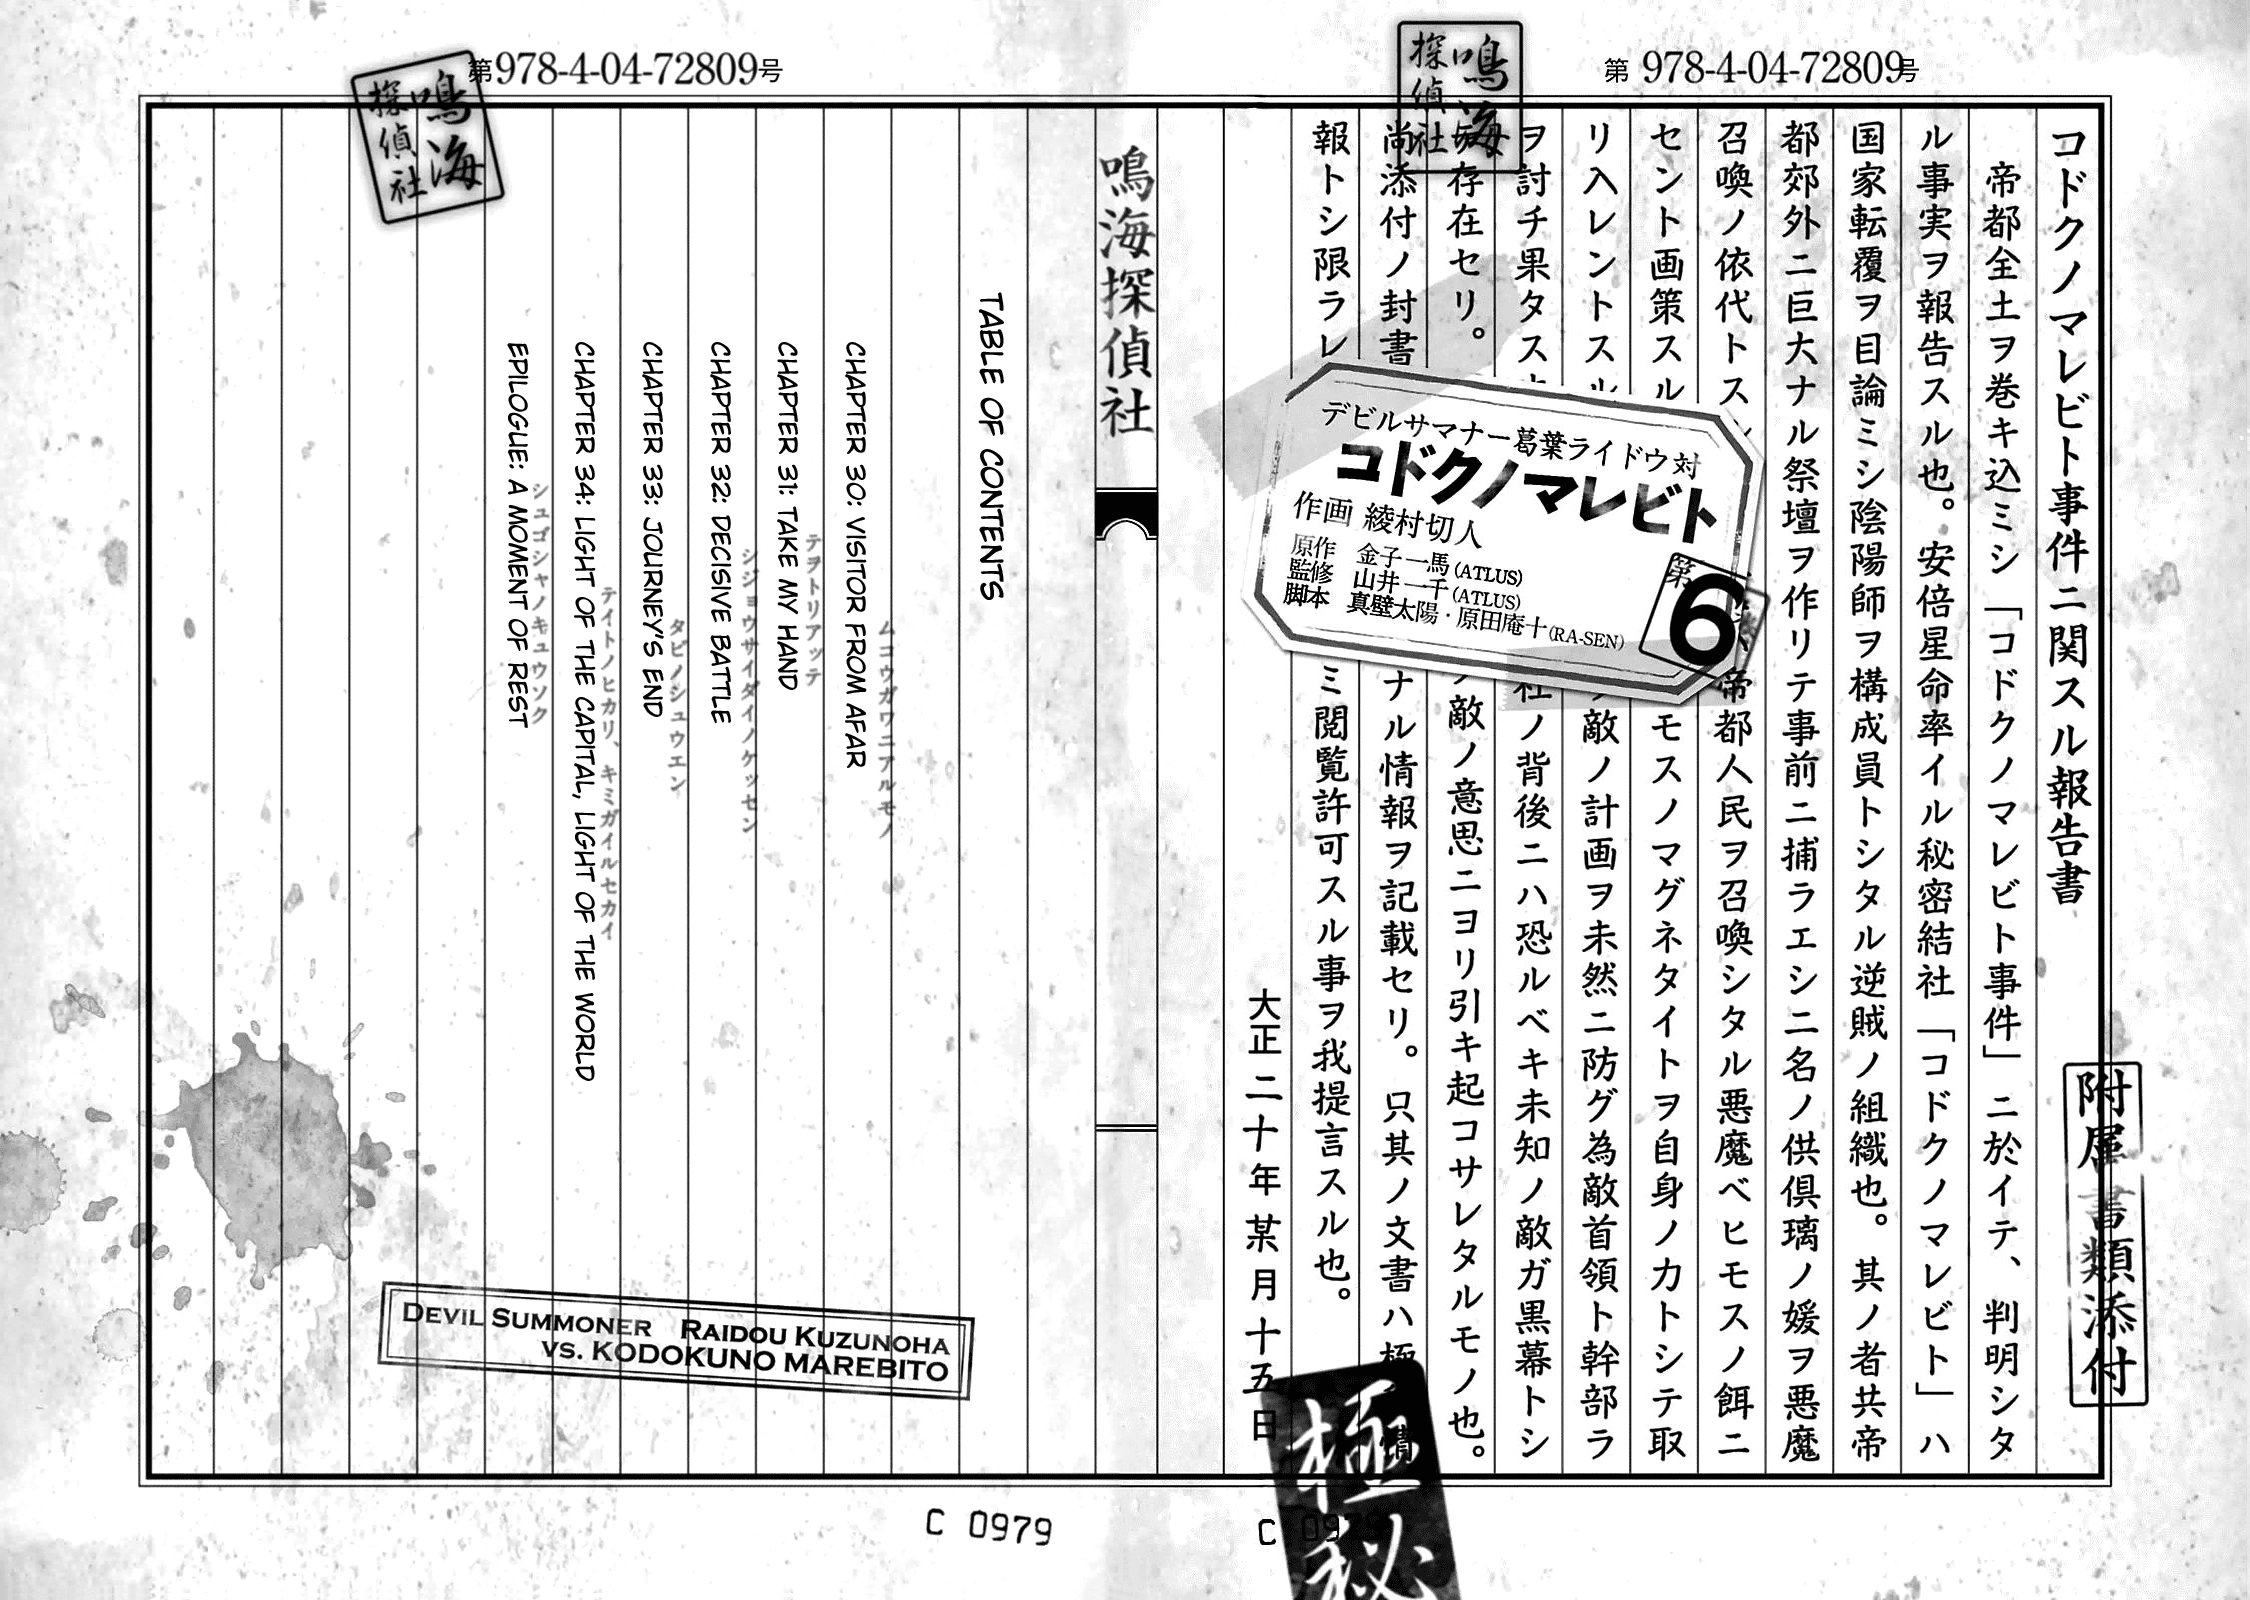 第978-4-04-72809号
鳴海
探偵社
コドクノマレビト事件ニ関スル報告書
帝都全土ヲ巻キ込ミシ「コドクノマレビト事件」ニ於イテ、判明シタ
ル事実ヲ報告スル也。安倍星命率イル秘密結社「コドクノマレビト」ハ
国家転覆ヲ目論ミシ陰陽師ヲ構成員トシタル逆賊ノ組織也。其ノ者共帝
都郊外ニ巨大ナル祭壇ヲ作リテ事前ニ捕ラエシ二名ノ供倶璃ノ媛ヲ悪魔
召喚ノ依代トス
帝都人民ヲ召喚シタル悪魔ベヒモスノ餌ニ
セント画策スル
モスノマグネタイトヲ自身ノカトシテ取
リ入レントスル
敵ノ計画ヲ未然ニ防グ為敵首領ト幹部ラ
ヲ討チ果タス
社ノ背後ニハ恐ルベキ未知ノ敵ガ黒幕トシ
存在セリ。
敵ノ意思ニヨリ引キ起コサレタルモノ也。
尚添付ノ封書
ナル情報ヲ記載セリ。只其ノ文書ハ極
報トシ限ラレ
ミ閲覧許可スル事ヲ我提言スル也。
大正二十年某月十五日
附属書類添付
デビルサマナー葛葉ライドウ対
コドクノマレビト
作画 綾村切人
原作 金子一馬(ATLUS)
監修 山井一千(ATLUS)
脚本 真壁太陽・原田庵十(RA-SEN)
第6
極秘
C 0979
鳴海探偵社
第978-4-04-72809号
鳴海
探偵社
TABLE OF CONTENTS
ムコウガワニアルモノ
CHAPTER 30: VISITOR FROM AFAR
テヲトリアッテ
CHAPTER 31: TAKE MY HAND
シジョウサイダイノケッセン
CHAPTER 32: DECISIVE BATTLE
タビノシュウエン
CHAPTER 33: JOURNEY'S END
テイトノヒカリ、キミガイルセカイ
CHAPTER 34: LIGHT OF THE CAPITAL, LIGHT OF THE WORLD
シュゴシャノキュウソク
EPILOGUE: A MOMENT OF REST
DEVIL SUMMONER RAIDOU KUZUNOHA
VS. KODOKUNO MAREBITO
C 0979